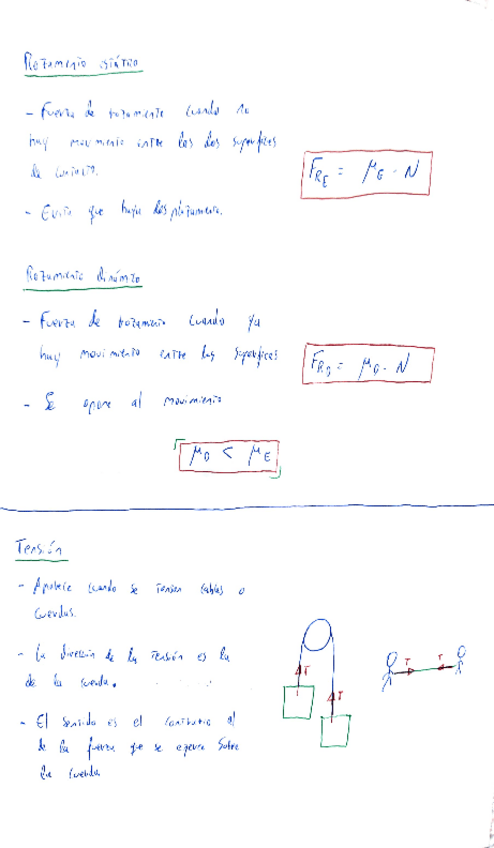 Rozamiento estático
- Fuerza de rozamiento cuando no
hay movimiento entre las dos superficies
de contacto.
F_RE = μE · N
- Evita que haya desplazamiento.
Rozamiento dinámico
- Fuerza de rozamiento cuando ya
hay movimiento entre las superficies
F_RD = μD · N
- Se opone al movimiento
μD < μE
Tensión
- Aparece cuando se tensan cables o
cuerdas.
- La dirección de la tensión es la
de la cuerda.
T
T
T
T
- El sentido es el contrario al
de la fuerza que se ejerce sobre
la cuerda